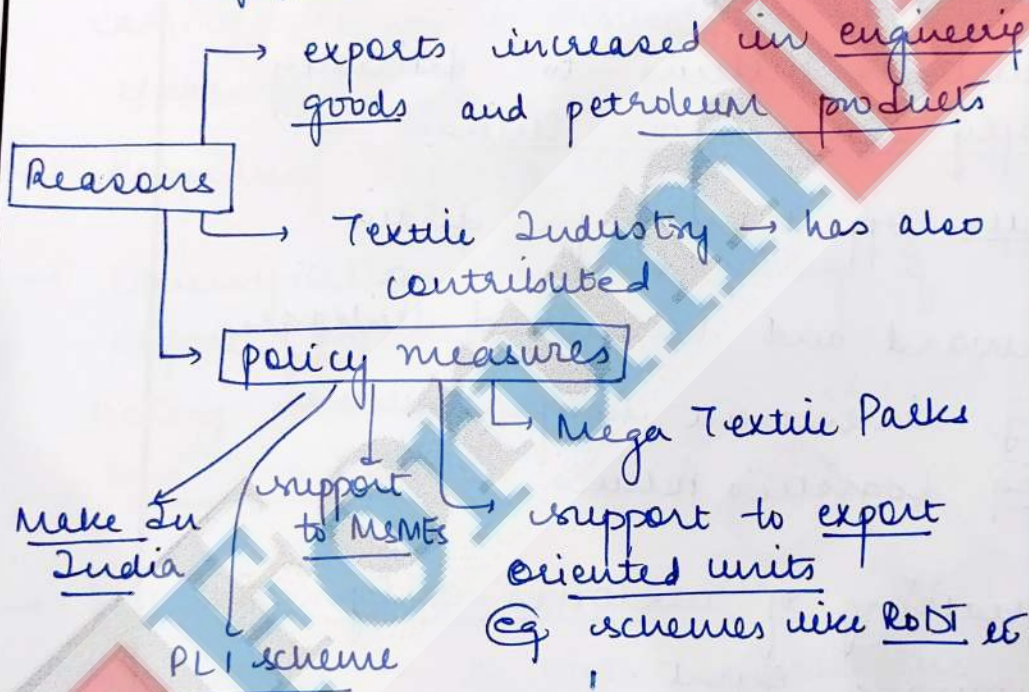 exports increased in engineerig
goods and petroleum products
Reasons
Textile Industry → has also
contributed
policy measures
Mega Textile Parks
support
to MSMEs
Make In
India
support to export
oriented units
eg schemes like RoDT et
PLI scheme
Forum